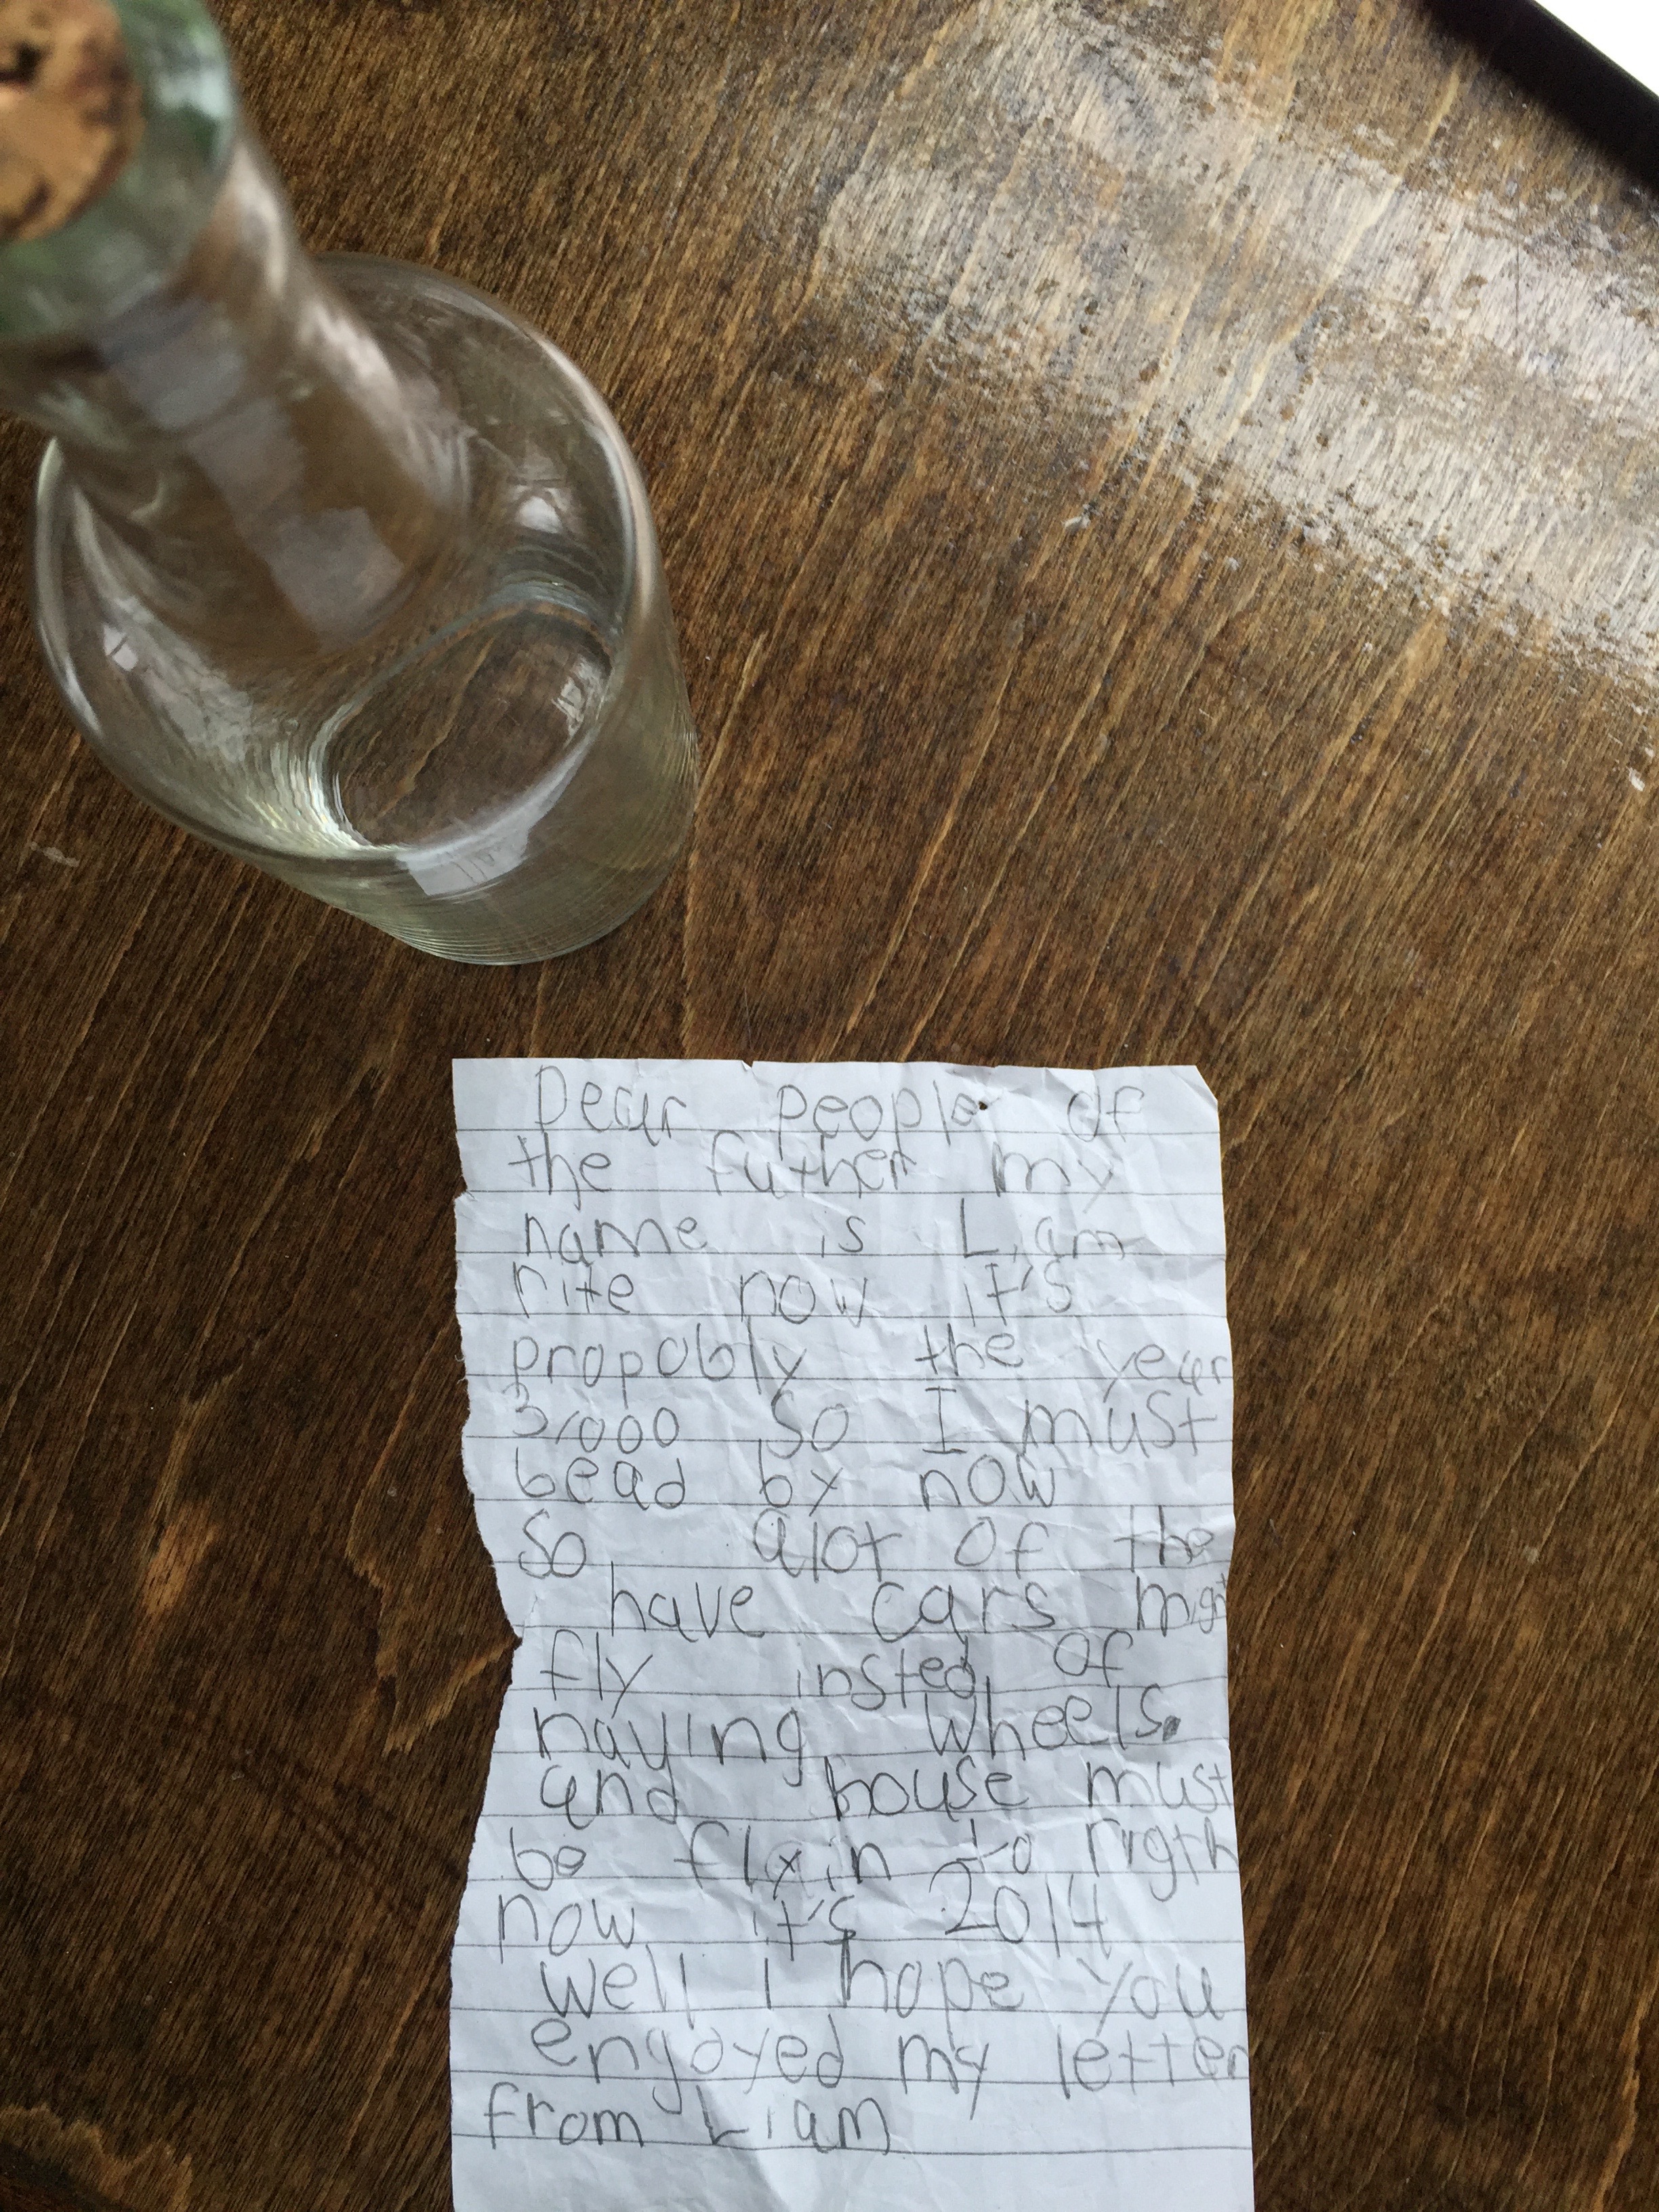 Dear people of
the futher my
name is Liam
rite now it's
propobly the year
3,000 So I must
bead by now
So alot of the
have cars might
fly insted of
haying wheels.
and house must
be flyin to rigth
now it's 2014
well i hope you
engoyed my letter
from Liam